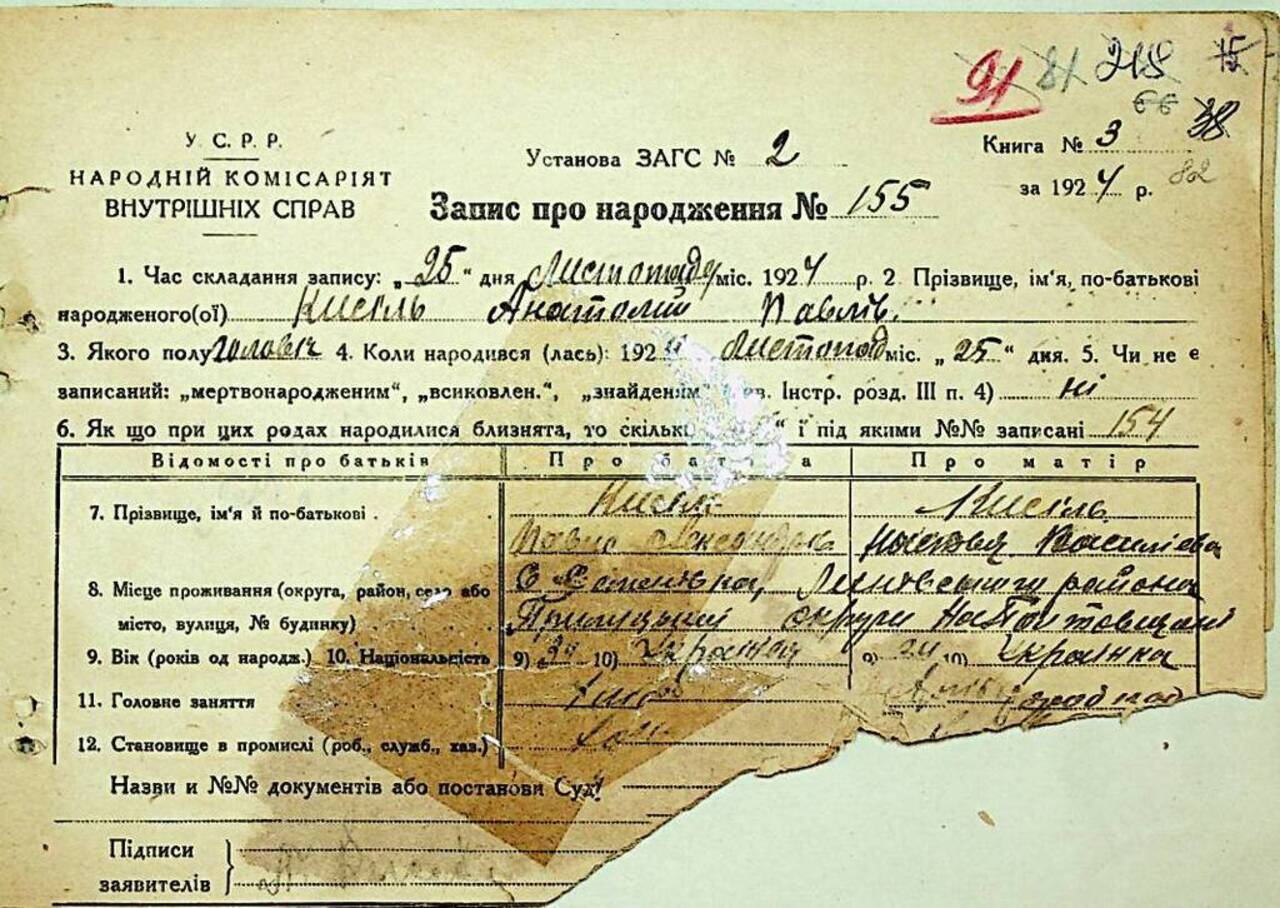 91 81 218 15
66
У. С. Р. Р.
НАРОДНІЙ КОМІСАРІЯТ
ВНУТРІШНІХ СПРАВ
Установа ЗАГС № 2
Книга № 3 38
за 1924 р. 82
Запис про народження № 155
1. Час складання запису: „25“ дня Листопада міс. 1924 р. 2 Прізвище, ім'я, по-батькові
народженого(ої) Кисіль Анатолий Павлів.
3. Якого полу чоловіч 4. Коли народився (лась): 1924 Листопад міс. „25“ дня. 5. Чи не є
записаний: „мертвонародженим“, „всиковлен.“, „знайденям“ Інстр. розд. III п. 4) ні
6. Як що при цих родах народилися близнята, то скільки і під якими №№ записані 154
Відомості про батьків Про батька Про матір
7. Прізвище, ім'я й по-батькові Кисіль Кисіль
Павло Настя Василієва
8. Місце проживання (округа, район, село або С Степановка, району
місто, вулиця, № будинку) Прилуцької округи
9. Вік (років од народж.) 10. Національність 9) 10) 9) 24 10) Українка
11. Головне заняття
12. Становище в промислі (роб., служб., хаз.)
Назви и №№ документів або постанови Суду
Підписи
заявителів